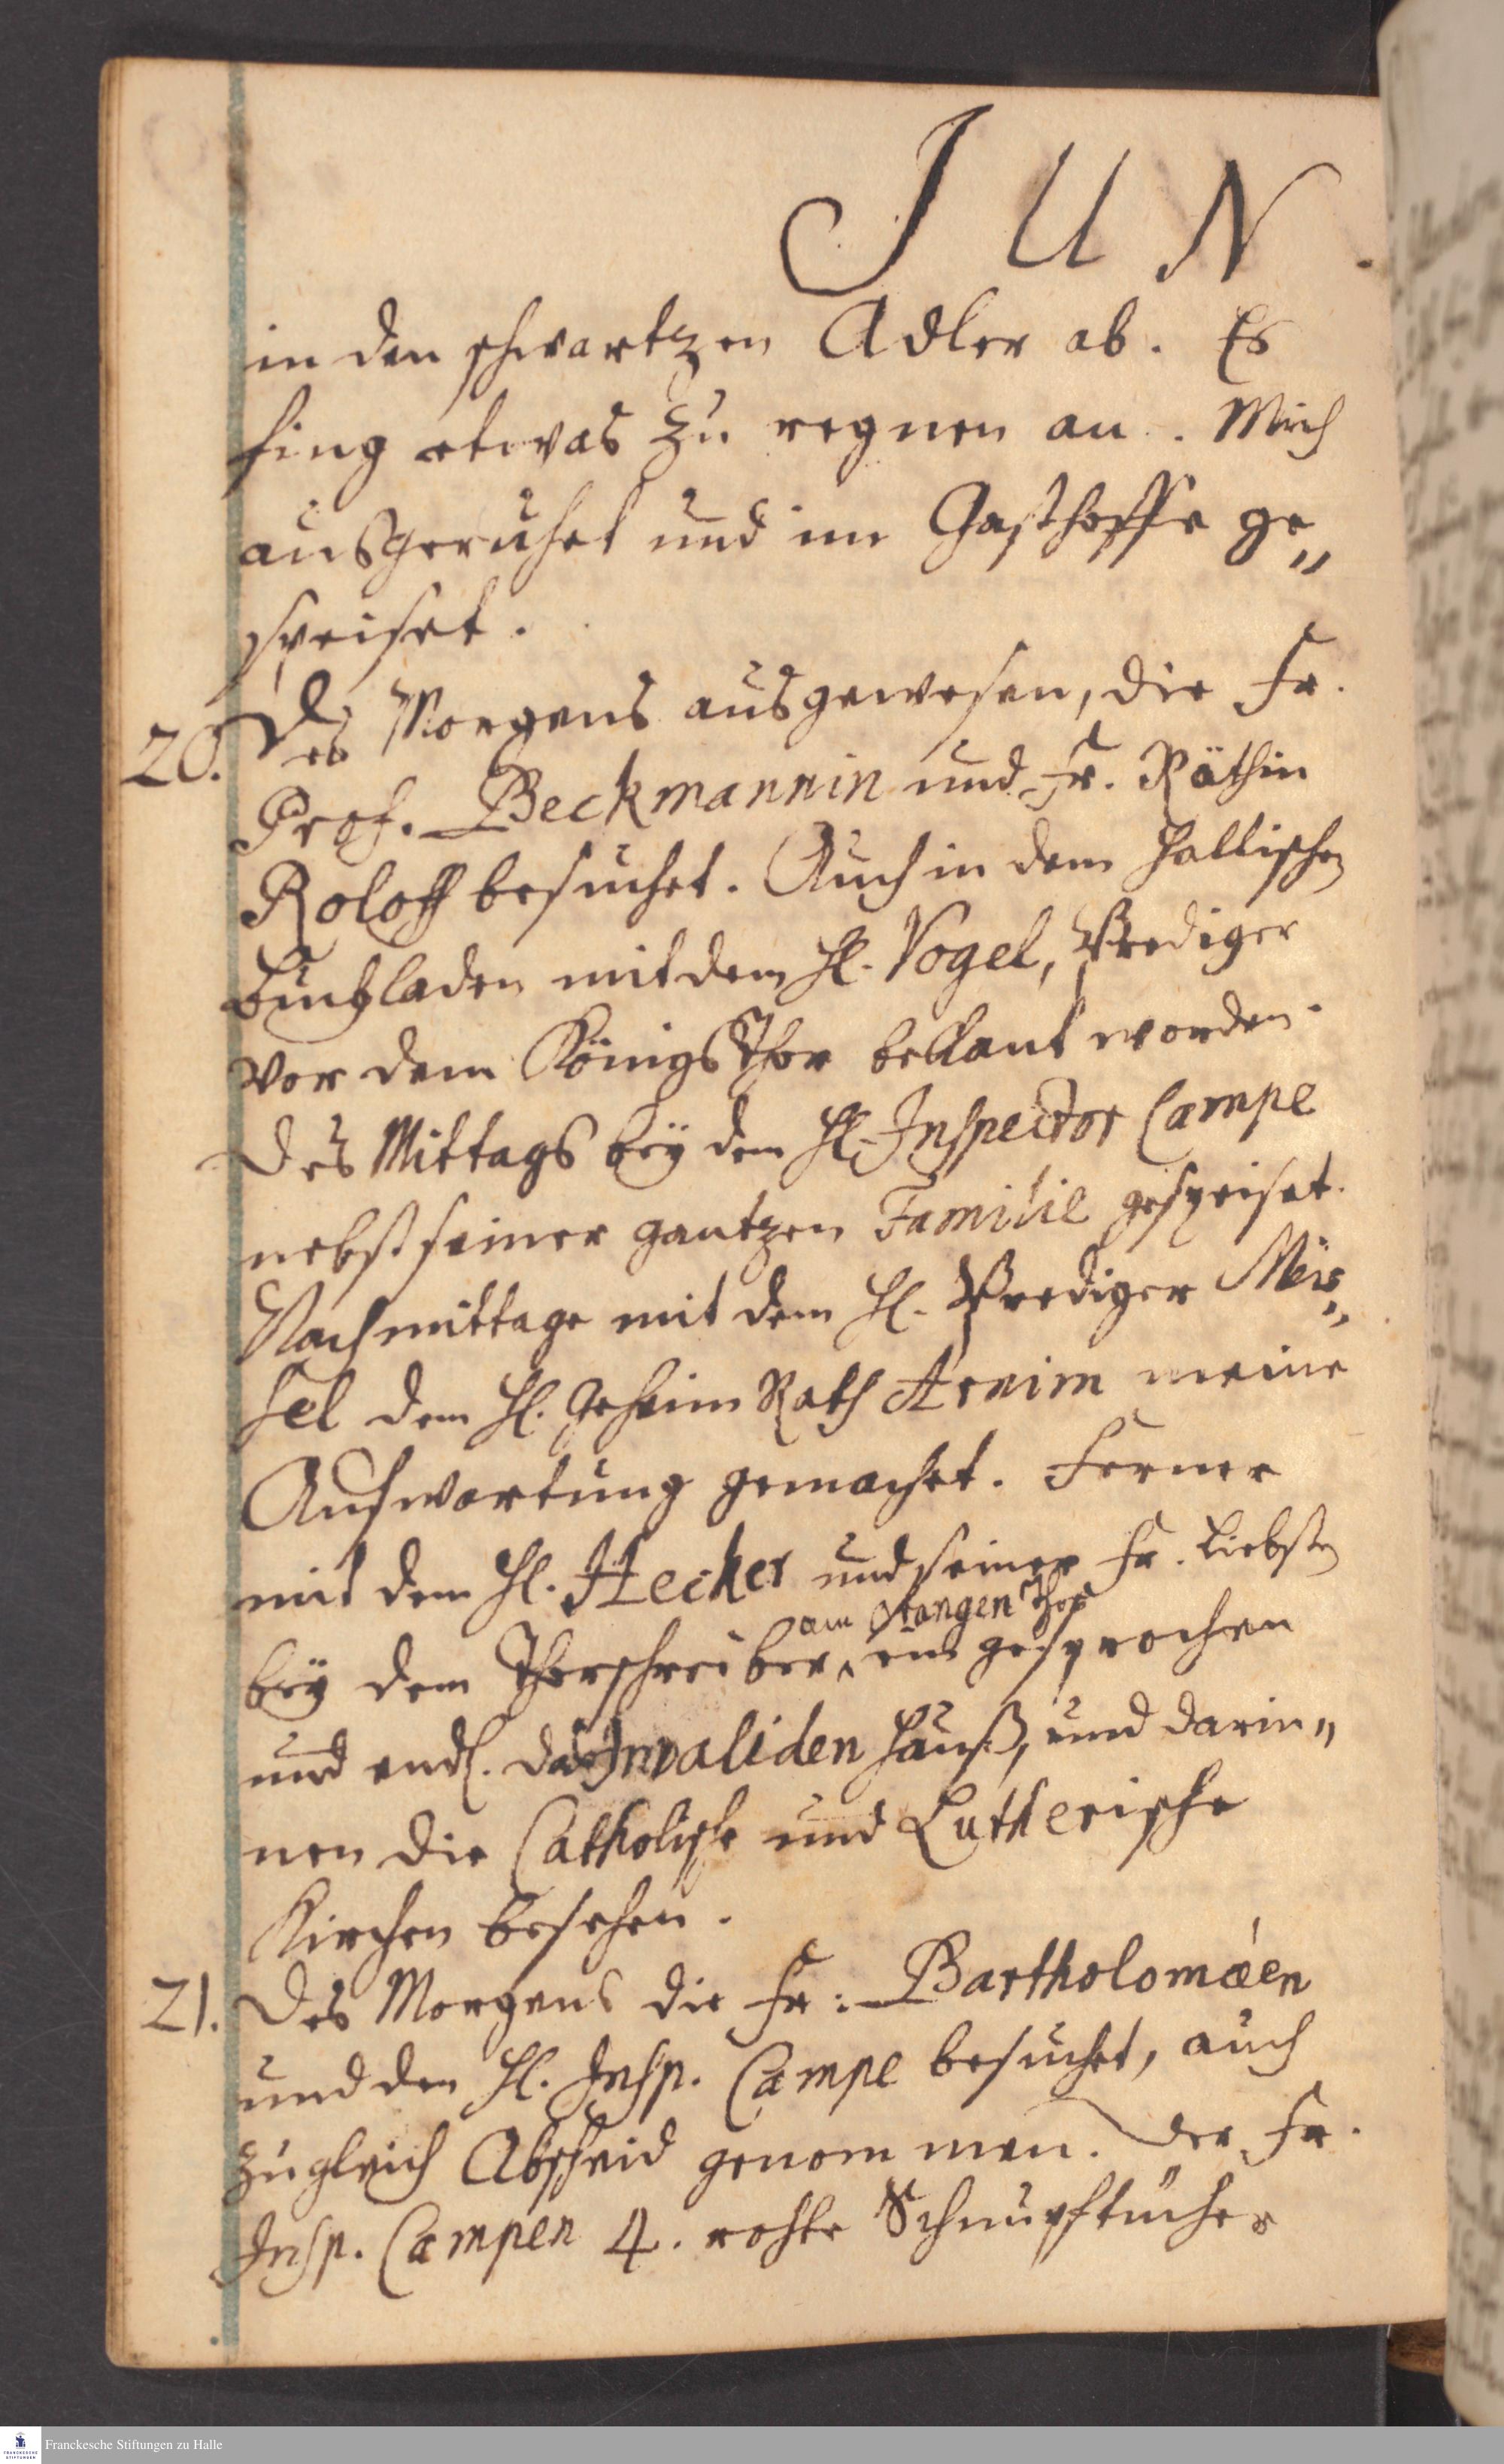 JUN.
in den schwartzen Adler ab. Es
fing etwas zu regnen an. Mich
ausgeruhet und im Gasthoffe ge„
speiset.
20. Des Morgens ausgewesen, die Fr.
Prof. Beckmannin und Fr. Räthin
Roloff besuchet. Auch in dem Hallischen
Buchladen mit dem H. Vogel, Prediger
vor dem Königs Thor bekant worden.
Des Mittags bey dem H. Inspector Campe
nebst seiner gantzen Familie gespeiset.
Nachmittage mit dem H. Prediger Meis„
sel dem H. Geheim Rath Arnim meine
Aufwartung gemachet. Ferner
mit dem H. Hecker und seiner Fr. Liebsten
am Orangen Thor
bey dem Thorschreiber eingesprochen
und endl. das Invaliden Hauß, und darin„
nen die Catholische und Lutherische
Kirchen besehen.
21. Des Morgens die Fr. Bartholomäen
und den H. Insp. Campe besuchet, auch
zugleich Abscheid genommen. Der Fr.
Insp. Campen 4. rohte Schnupftücher
Franckesche Stiftungen zu Halle